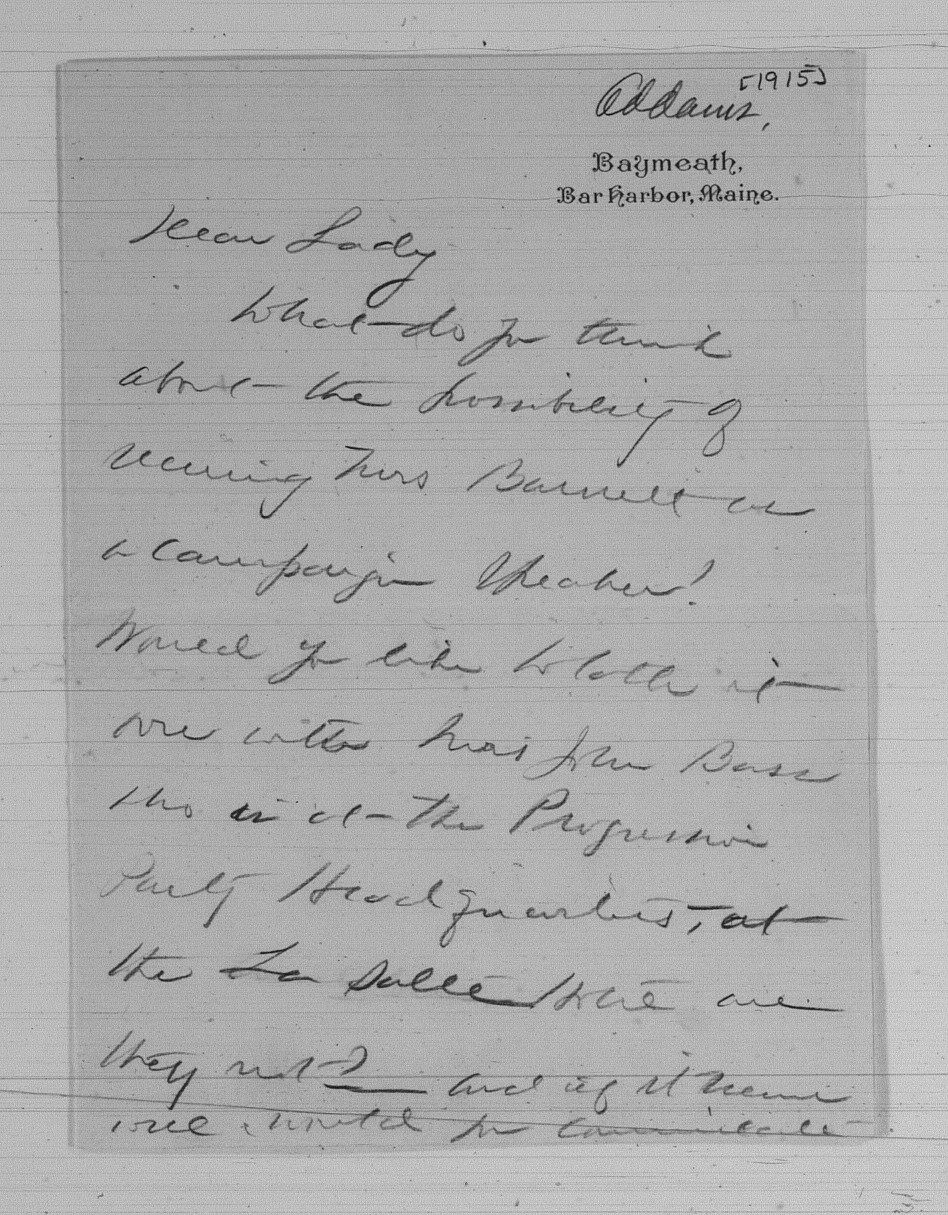 [1915]
Addams,
Baymeath,
Bar Harbor, Maine.
Dear Lady
What do you think
about the possibility of
securing Mrs Barnett as
a campaign speaker?
Would you like to talk it
over with Mrs John Bass
who is at the Progressive
Party Headquarters, at
the La Salle Hotel are
they not? and if it seems
well would you communicate